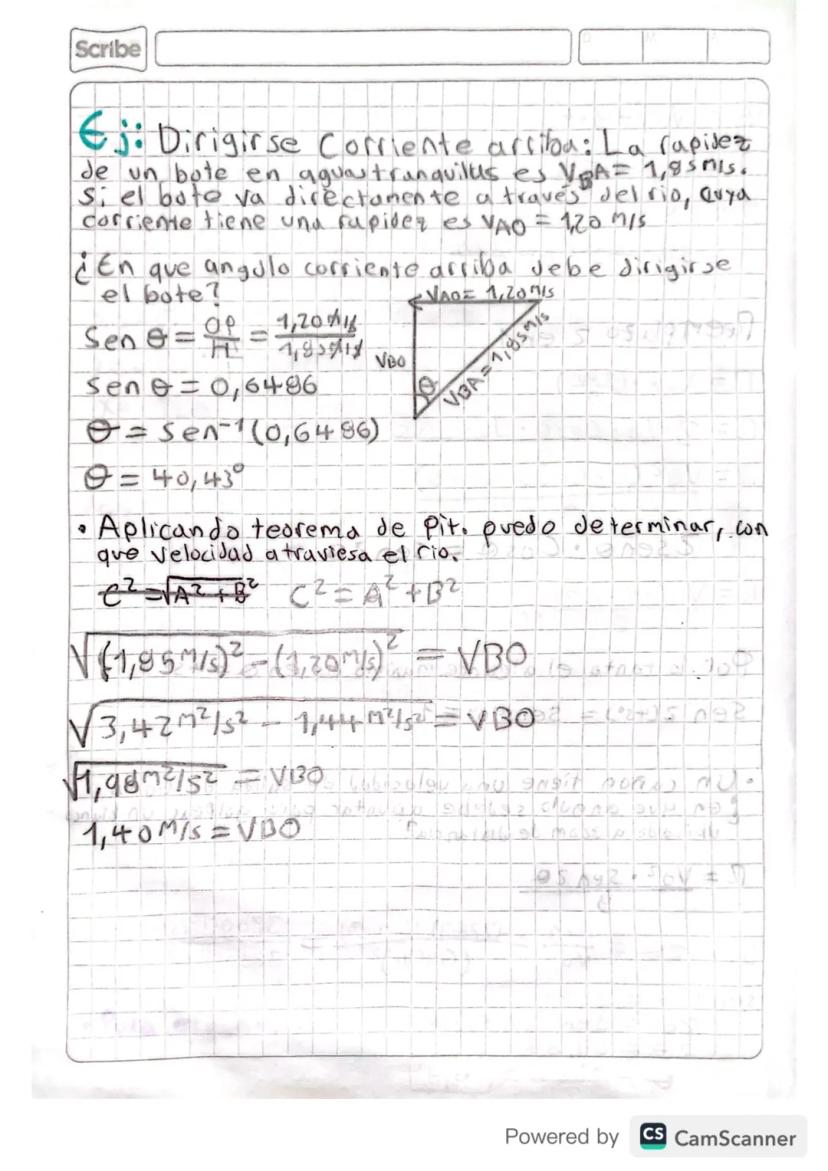 Scribe
Ej: Dirigirse Corriente arriba: La rapidez
de un bote en aguas tranquilas es VBA = 1,85 m/s.
Si el bote va directamente a través del rio, cuya
corriente tiene una rapidez es VAO = 1,20 m/s
¿En que angulo corriente arriba debe dirigirse
el bote?
VAO = 1,20 m/s
Sen θ = OP/H = 1,20 m/s / 1,85 m/s
VBO
θ
VBA = 1,85 m/s
Sen θ = 0,6486
θ = Sen⁻¹(0,6486)
θ = 40,43°
• Aplicando teorema de Pit. puedo determinar, con
que velocidad atraviesa el rio.
C² = √A² + B² C² = A² + B²
√(1,85 m/s)² - (1,20 m/s)² = VBO
√3,42 m²/s² - 1,44 m²/s² = VBO
√1,98 m²/s² = VBO
1,40 m/s = VBO
Powered by CS CamScanner